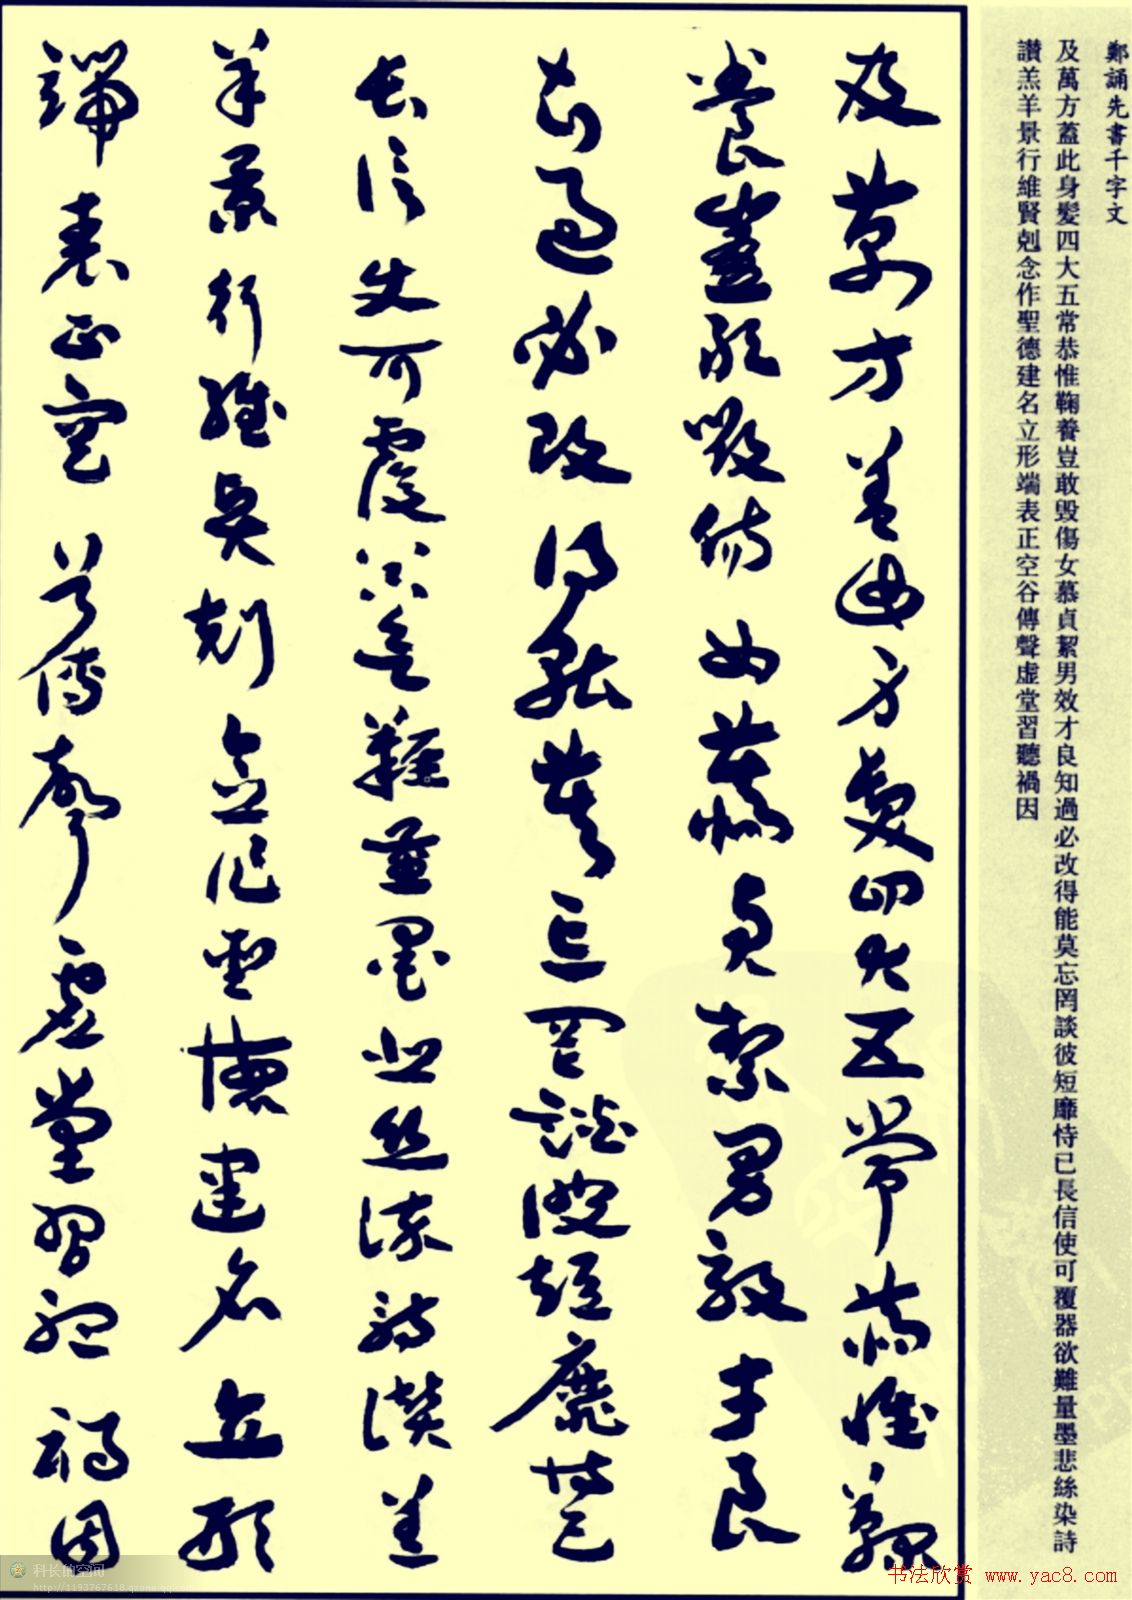 鄭誦先書千字文
及萬方蓋此身髮四大五常恭惟鞠養豈敢毀傷女慕貞絜男效才良知過必改得能莫忘罔談彼短靡恃已長信使可覆器欲難量墨悲絲染詩
讚羔羊景行維賢剋念作聖德建名立形端表正空谷傳聲虛堂習聽禍因
及萬方蓋此身髮四大五常恭惟鞠
養豈敢毀傷女慕貞絜男效才良
知過必改得能莫忘罔談彼短靡恃己
長信使可覆器欲難量墨悲絲染詩讚羔
羊景行維賢剋念作聖德建名立形
端表正空谷傳聲虛堂習聽禍因
科长的空间
http://1193767618.qzone.qq.com
书法欣赏 www.yac8.com